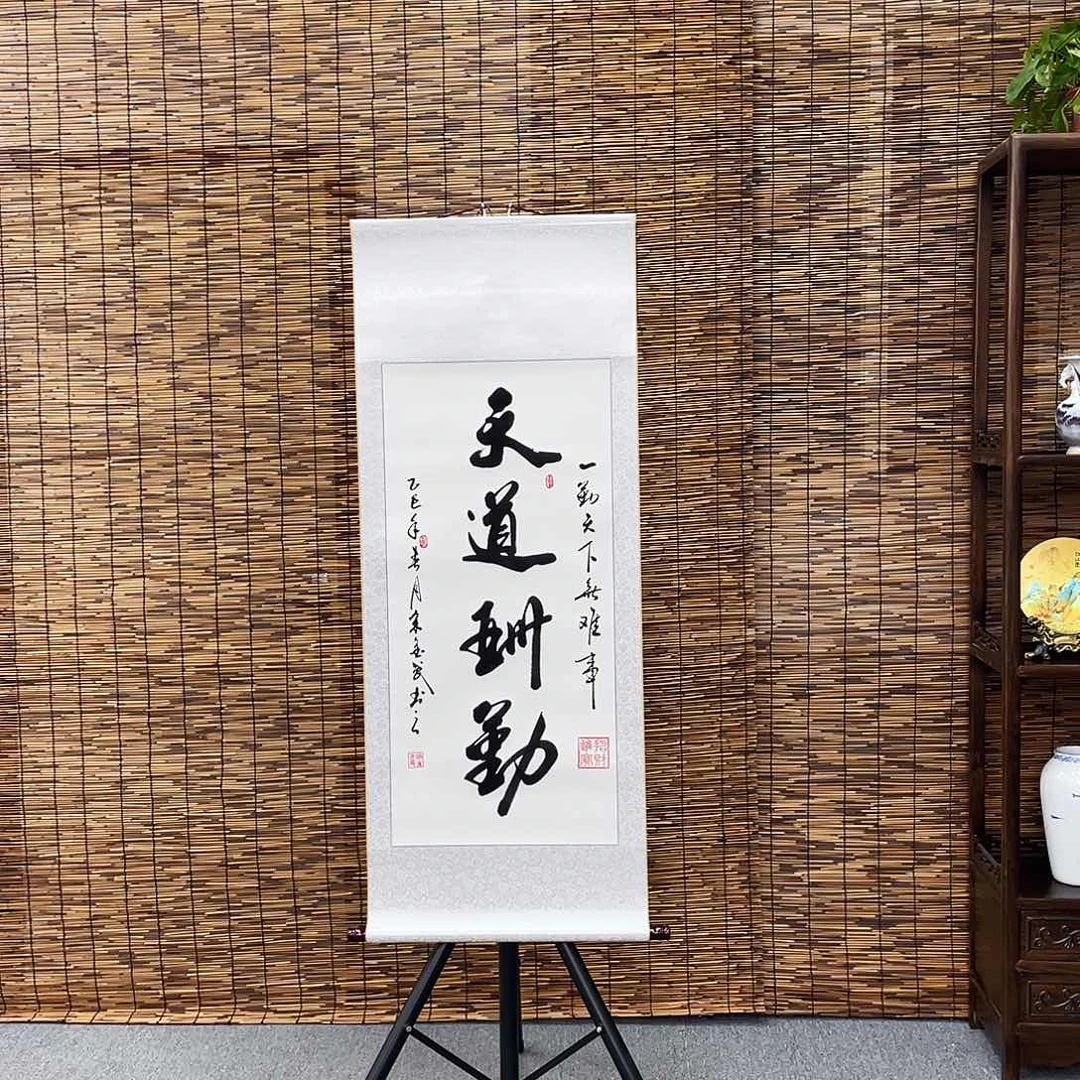 一勤天下无难事
天道酬勤
乙巳年春月宋金武书